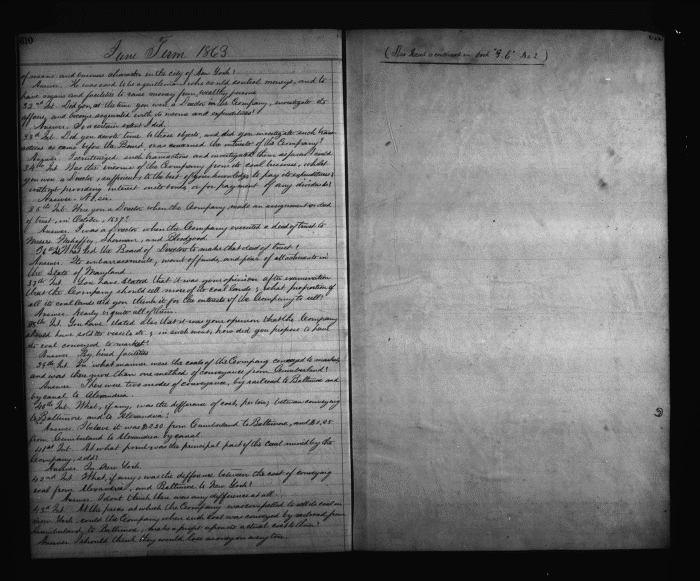 610
June Term 1863
of means and business character in the city of New York?
Answer. He was said to be a gentleman who could control moneys, and to
have means and facilities to raise money from wealthy persons
32nd Int. Did you, at the time you were a Director in the Company, investigate its
affairs, and become acquainted with its means and expenditures?
Answer. To a certain extent I did.
33rd Int. Did you devote time to those objects, and did you investigate such trans
actions as came before the Board, and concerned the interests of the Company?
Answer. I scrutinized such transactions and investigated them as far as I could
34th Int. Was the income of the Company from its coal business, whilst
you were a Director, sufficient to the best of your knowledge to pay its expenditures
without providing interest on its bonds or for payment of any dividends?
Answer. No sir.
35th Int. Were you a Director when the Company made an assignment or deed
of trust, in October, 1857?
Answer. I was a Director when the Company executed a deed of trust to
Messrs Mehaffey, Sherman, and Bloodgood
36th Int. What led the Board of Directors to make that deed of trust?
Answer. Its embarrassments, want of funds and fear of attachments in
the State of Maryland.
37th Int. You have stated that it was your opinion after examination
that the Company should sell some of its coal lands; what proportion of
all its coal lands did you think it for the interests of the Company to sell?
Answer. Nearly or quite all of them.
38th Int. You have stated also that it was your opinion that the Company
should have sold its vessels &c, in such event, how did you propose to have
its coal conveyed to market?
Answer. By hired facilities
39th Int. In what manner were the coals of the Company conveyed to market,
and was there more than one method of conveyance from Cumberland?
Answer. There were two modes of conveyance, by railroad to Baltimore and
by canal to Alexandria.
40th Int. What, if any, was the difference of cost, per ton, between conveying
to Baltimore and to Alexandria?
Answer. I believe it was $2.20 from Cumberland to Baltimore, and
from Cumberland to Alexandria by canal.
41st Int. At what point was the principal part of the coal mined by the
Company, sold?
Answer. In New York
42nd Int. What, if any, was the difference between the cost of conveying
coal from Alexandria, and Baltimore to New York?
Answer. I dont think there was any difference at all.
43rd Int. At the prices at which the Company was compelled to sell its coal in
New York, could the Company when such coal was conveyed by railroad from
Cumberland, to Baltimore, make a profit upon its actual cost to them?
Answer. I should think they would lose money on every ton.
(This Record is continued in book "J. G." No 2)